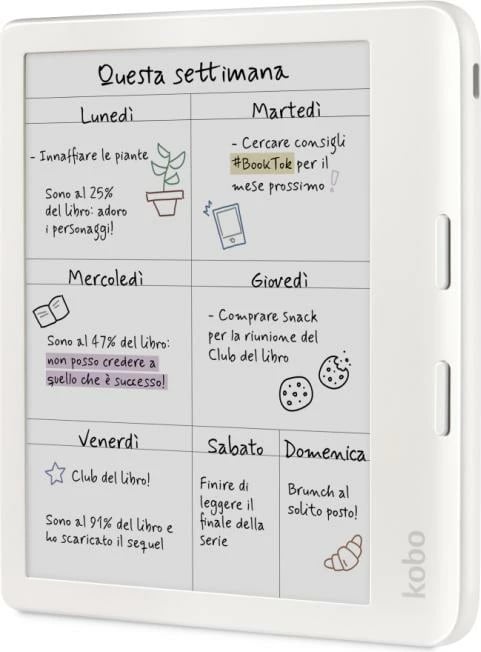 Questa settimana
Lunedì
- Innaffiare le piante
Sono al 25%
del libro: adoro
i personaggi!
Martedì
- Cercare consigli
#BookTok per il
mese prossimo!
Mercoledì
Sono al 47% del libro:
non posso credere a
quello che è successo!
Giovedì
- Comprare Snack
per la riunione del
Club del libro
Venerdì
Club del libro!
Sono al 91% del libro e
ho scaricato il sequel
Sabato
Finire di
leggere il
finale della
serie
Domenica
Brunch al
solito posto!
kobo